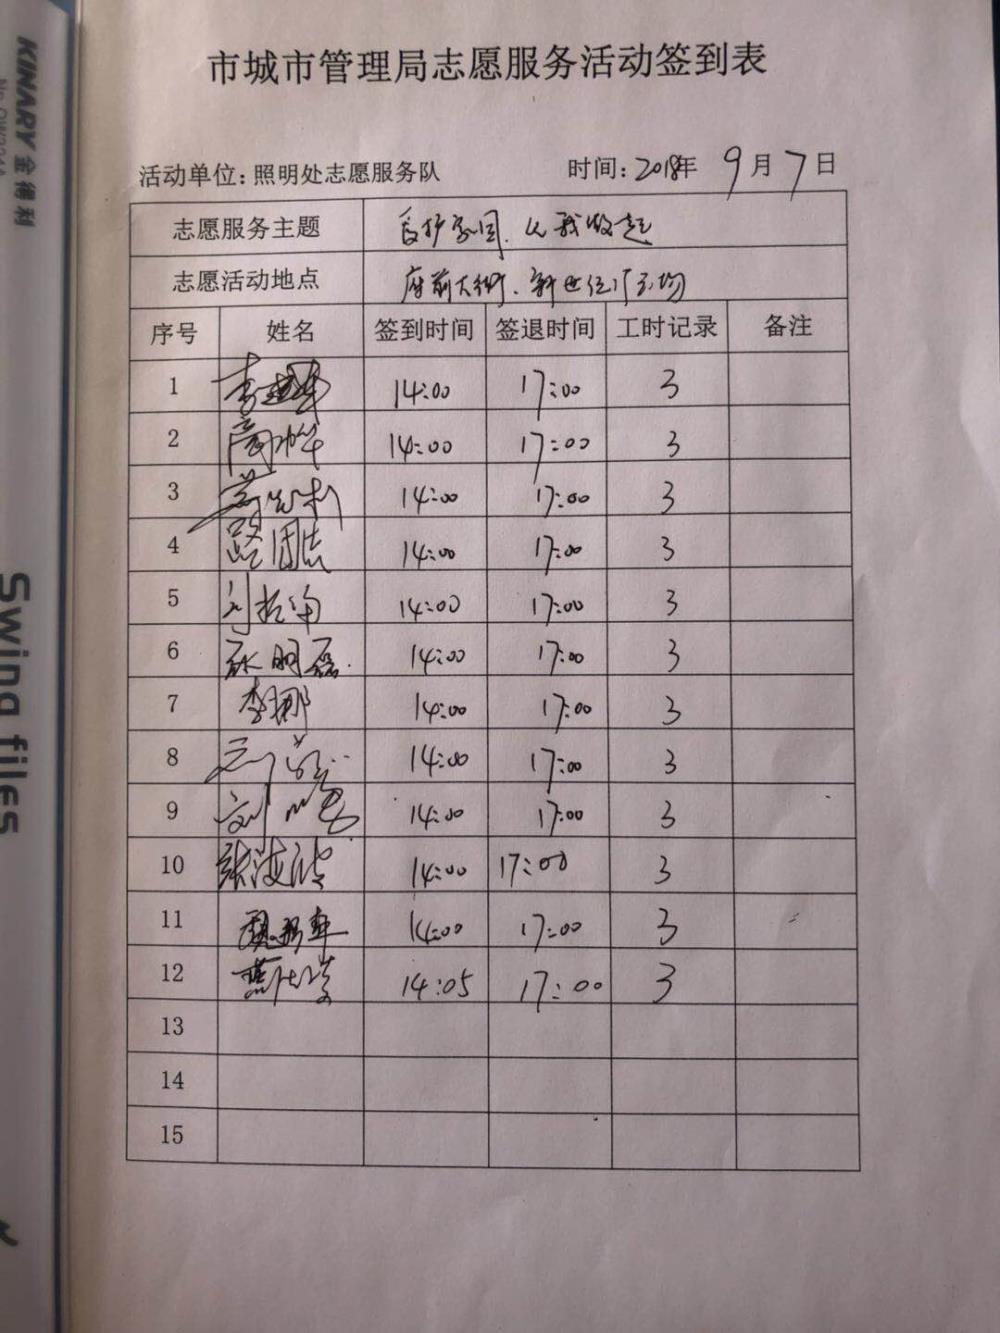 KINARY 金得利
Swing files
市城市管理局志愿服务活动签到表
活动单位:照明处志愿服务队 时间:2018年 9月7日
志愿服务主题 爱护家园、从我做起
志愿活动地点 府前大街、新世纪广场
序号 姓名 签到时间 签退时间 工时记录 备注
1 14:00 17:00 3
2 14:00 17:00 3
3 14:00 17:00 3
4 14:00 17:00 3
5 14:00 17:00 3
6 14:00 17:00 3
7 李娜 14:00 17:00 3
8 14:00 17:00 3
9 14:00 17:00 3
10 张海波 14:00 17:00 3
11 14:00 17:00 3
12 14:05 17:00 3
13
14
15